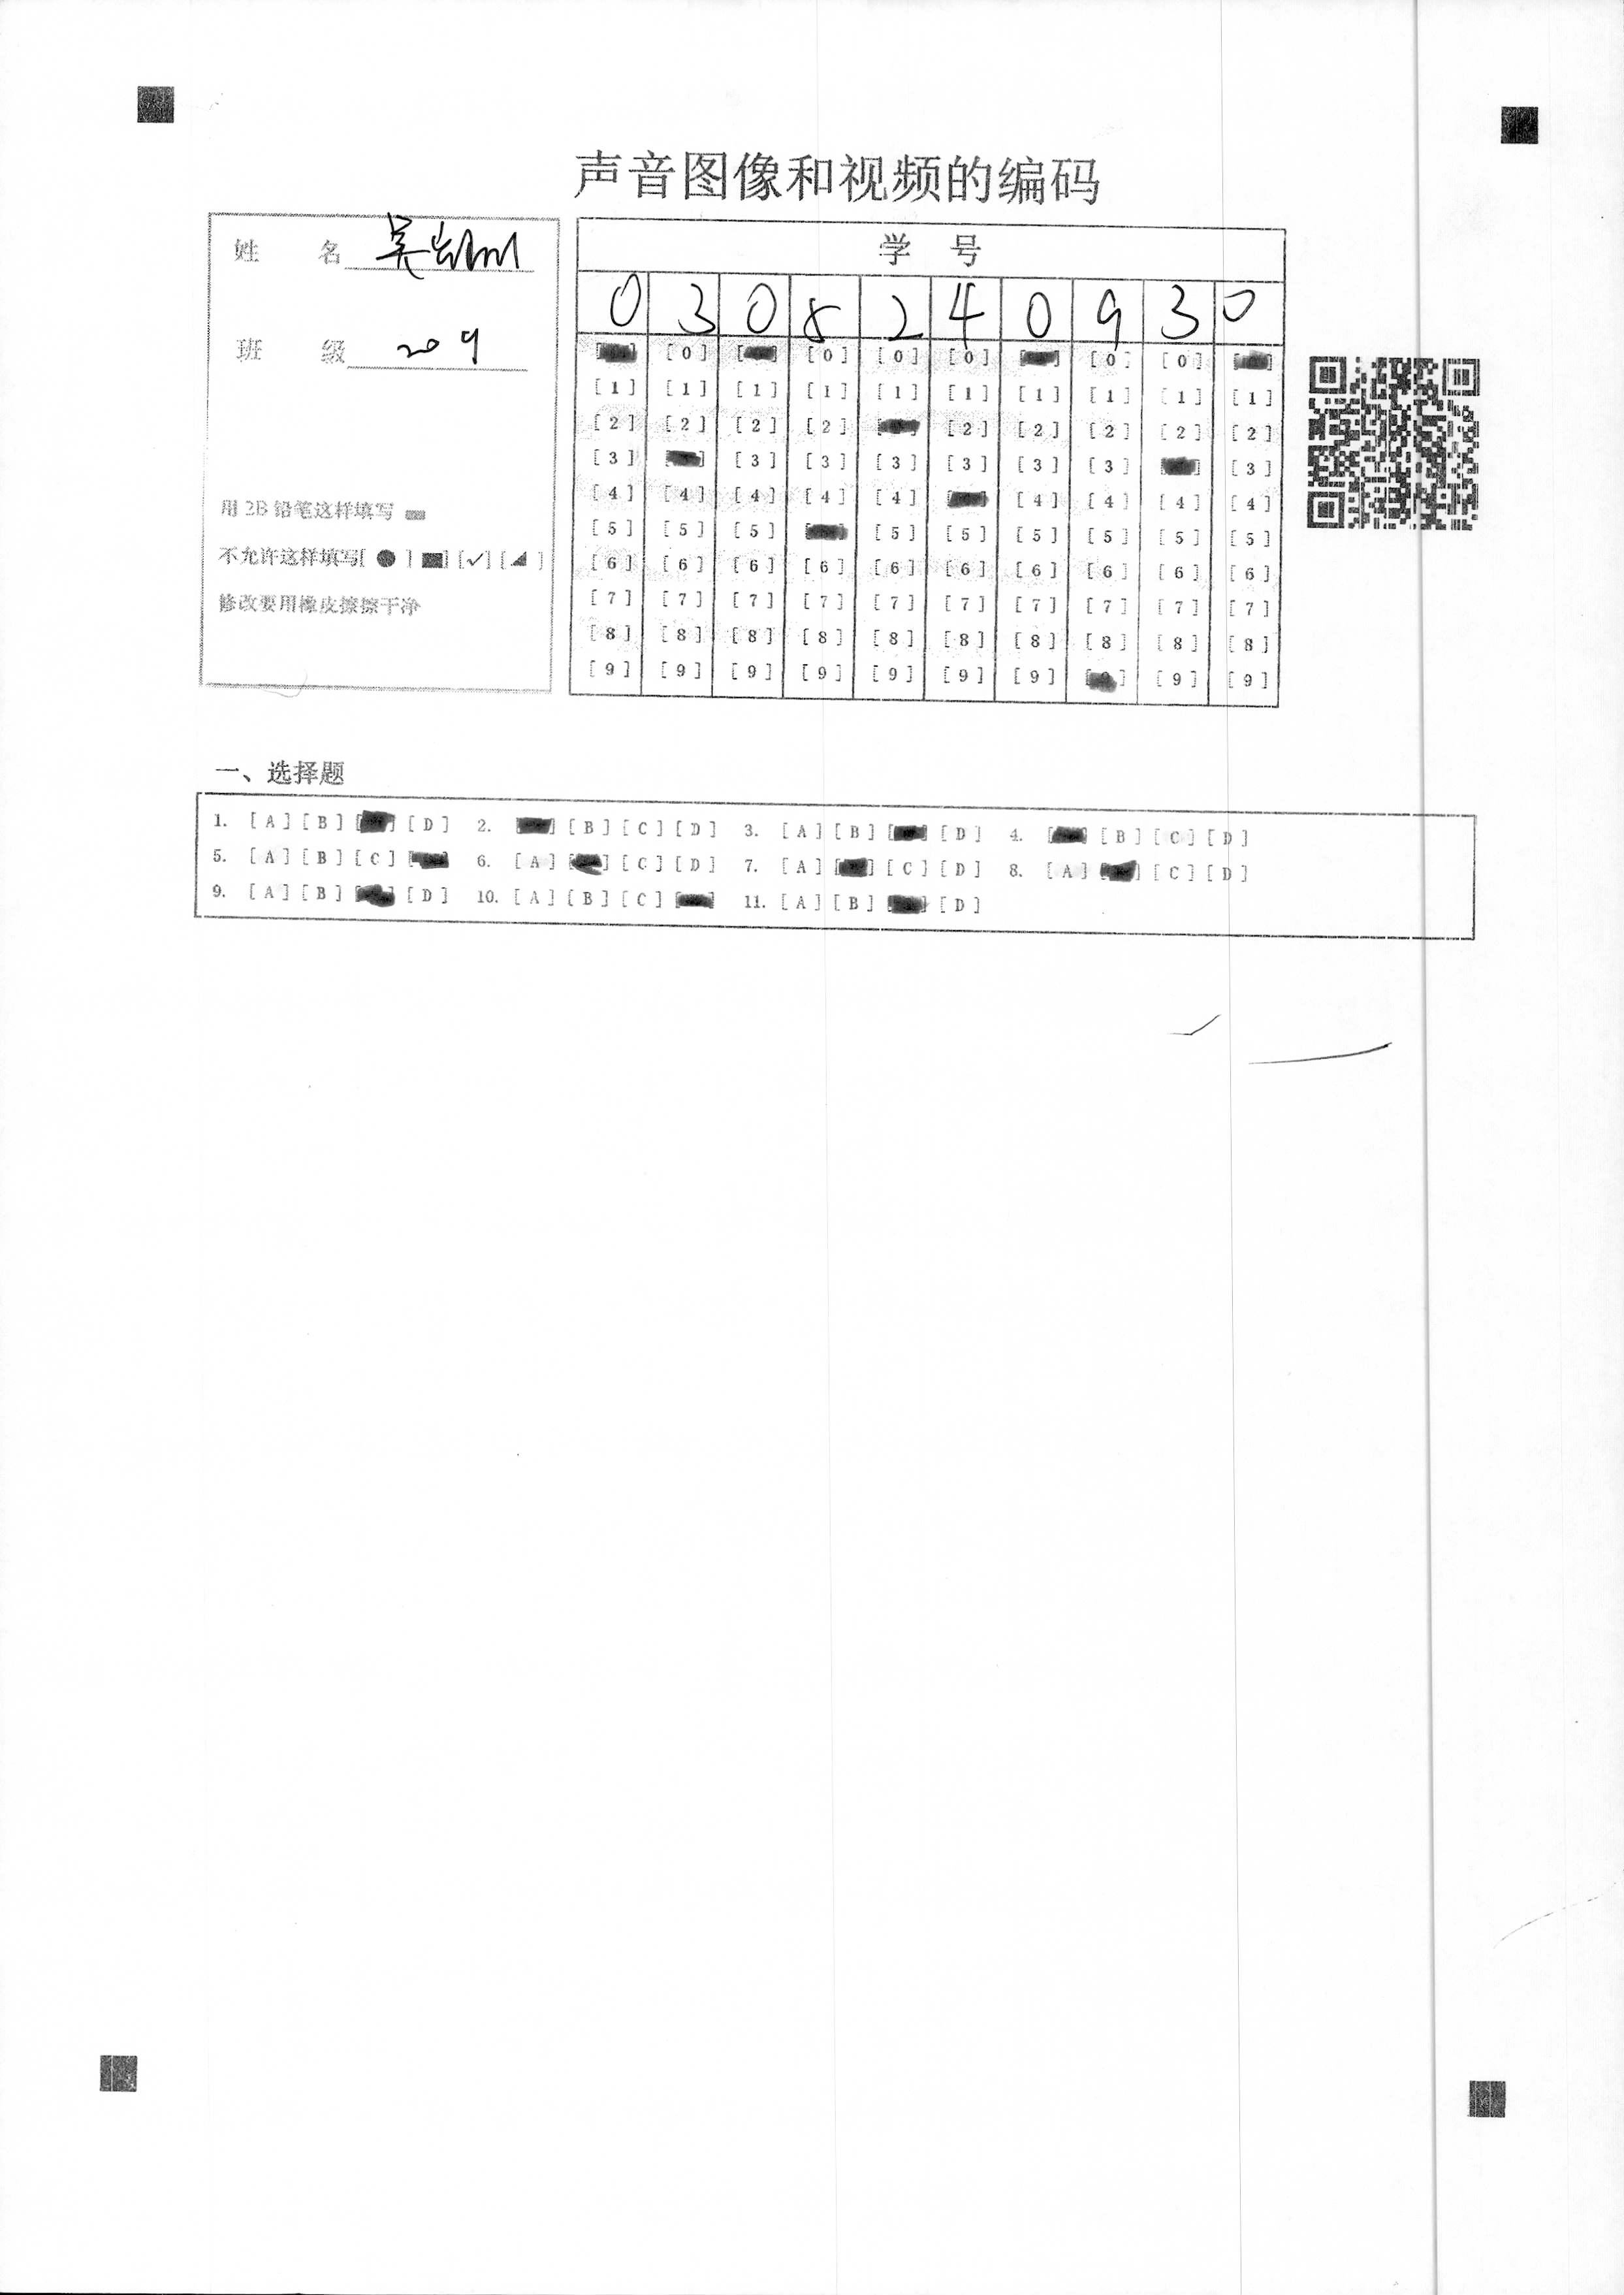 声音图像和视频的编码
姓 名 吴
班 级 209
用 2B 铅笔这样填写
不允许这样填写[ ● ] [■] [✓] [◢ ]
修改要用橡皮擦擦干净
学 号
0 3 0 2 4 0 9 3 0
[0] [0] [0] [0] [0] [0]
[1] [1] [1] [1] [1] [1] [1] [1] [1] [1]
[2] [2] [2] [2] [2] [2] [2] [2] [2]
[3] [3] [3] [3] [3] [3] [3] [3]
[4] [4] [4] [4] [4] [4] [4] [4] [4]
[5] [5] [5] [5] [5] [5] [5] [5] [5]
[6] [6] [6] [6] [6] [6] [6] [6] [6] [6]
[7] [7] [7] [7] [7] [7] [7] [7] [7] [7]
[8] [8] [8] [8] [8] [8] [8] [8] [8] [8]
[9] [9] [9] [9] [9] [9] [9] [9] [9]
一、选择题
1. [A] [B] [D] 2. [B] [C] [D] 3. [A] [B] [D] 4. [B] [C] [D]
5. [A] [B] [C] 6. [A] [C] [D] 7. [A] [C] [D] 8. [A] [C] [D]
9. [A] [B] [D] 10. [A] [B] [C] 11. [A] [B] [D]